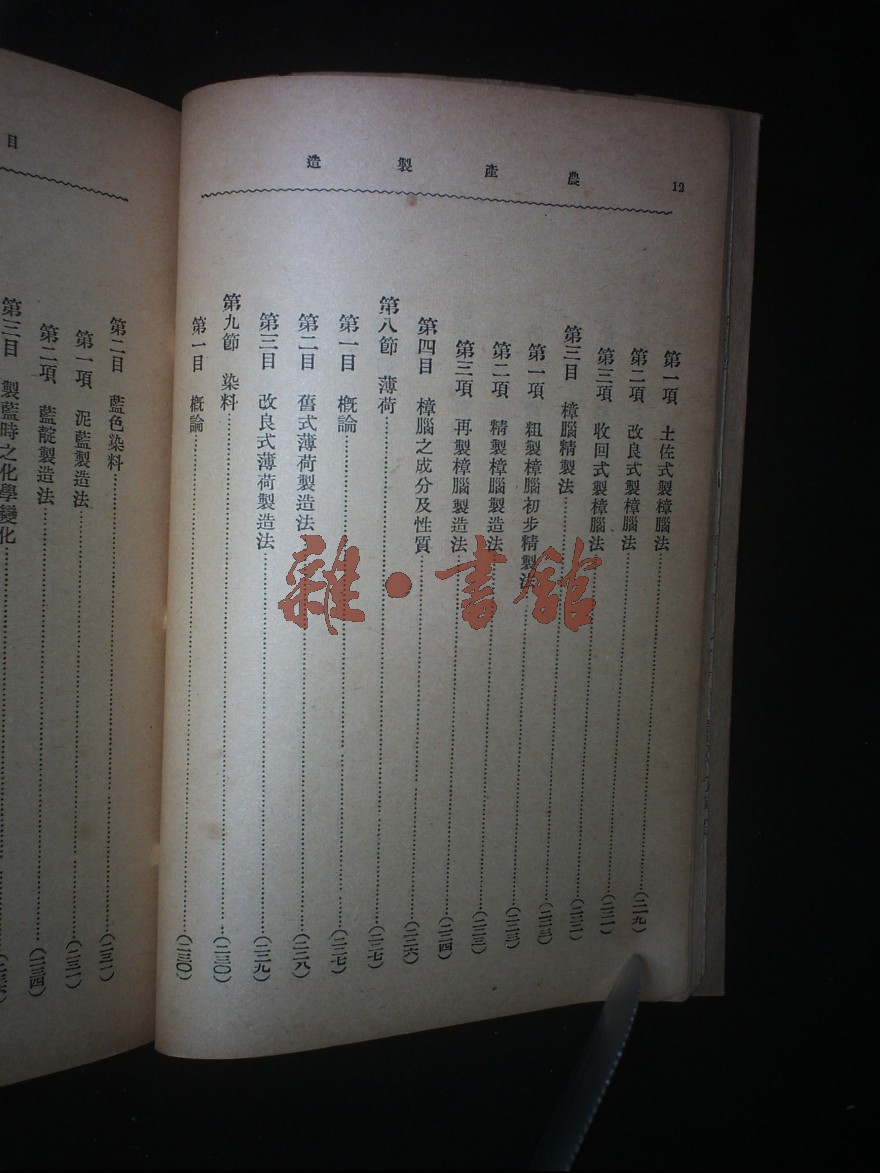 農產製造
12
第一項　土佐式製樟腦法……(二一九)
第二項　改良式製樟腦法……(二二一)
第三項　收回式製樟腦法……(二二二)
第三目　樟腦精製法……(二二三)
第一項　粗製樟腦初步精製法……(二二三)
第二項　精製樟腦製造法……(二二三)
第三項　再製樟腦製造法……(二二四)
第四目　樟腦之成分及性質……(二二六)
第八節　薄荷……(二二七)
第一目　概論……(二二七)
第二目　舊式薄荷製造法……(二二八)
第三目　改良式薄荷製造法……(二二九)
第九節　染料……(二三〇)
第一目　概論……(二三〇)
目
第二目　藍色染料……(二三一)
第一項　泥藍製造法……(二三一)
第二項　藍靛製造法……(二三四)
第三目　製藍時之化學變化……(二三六)
雜·書館